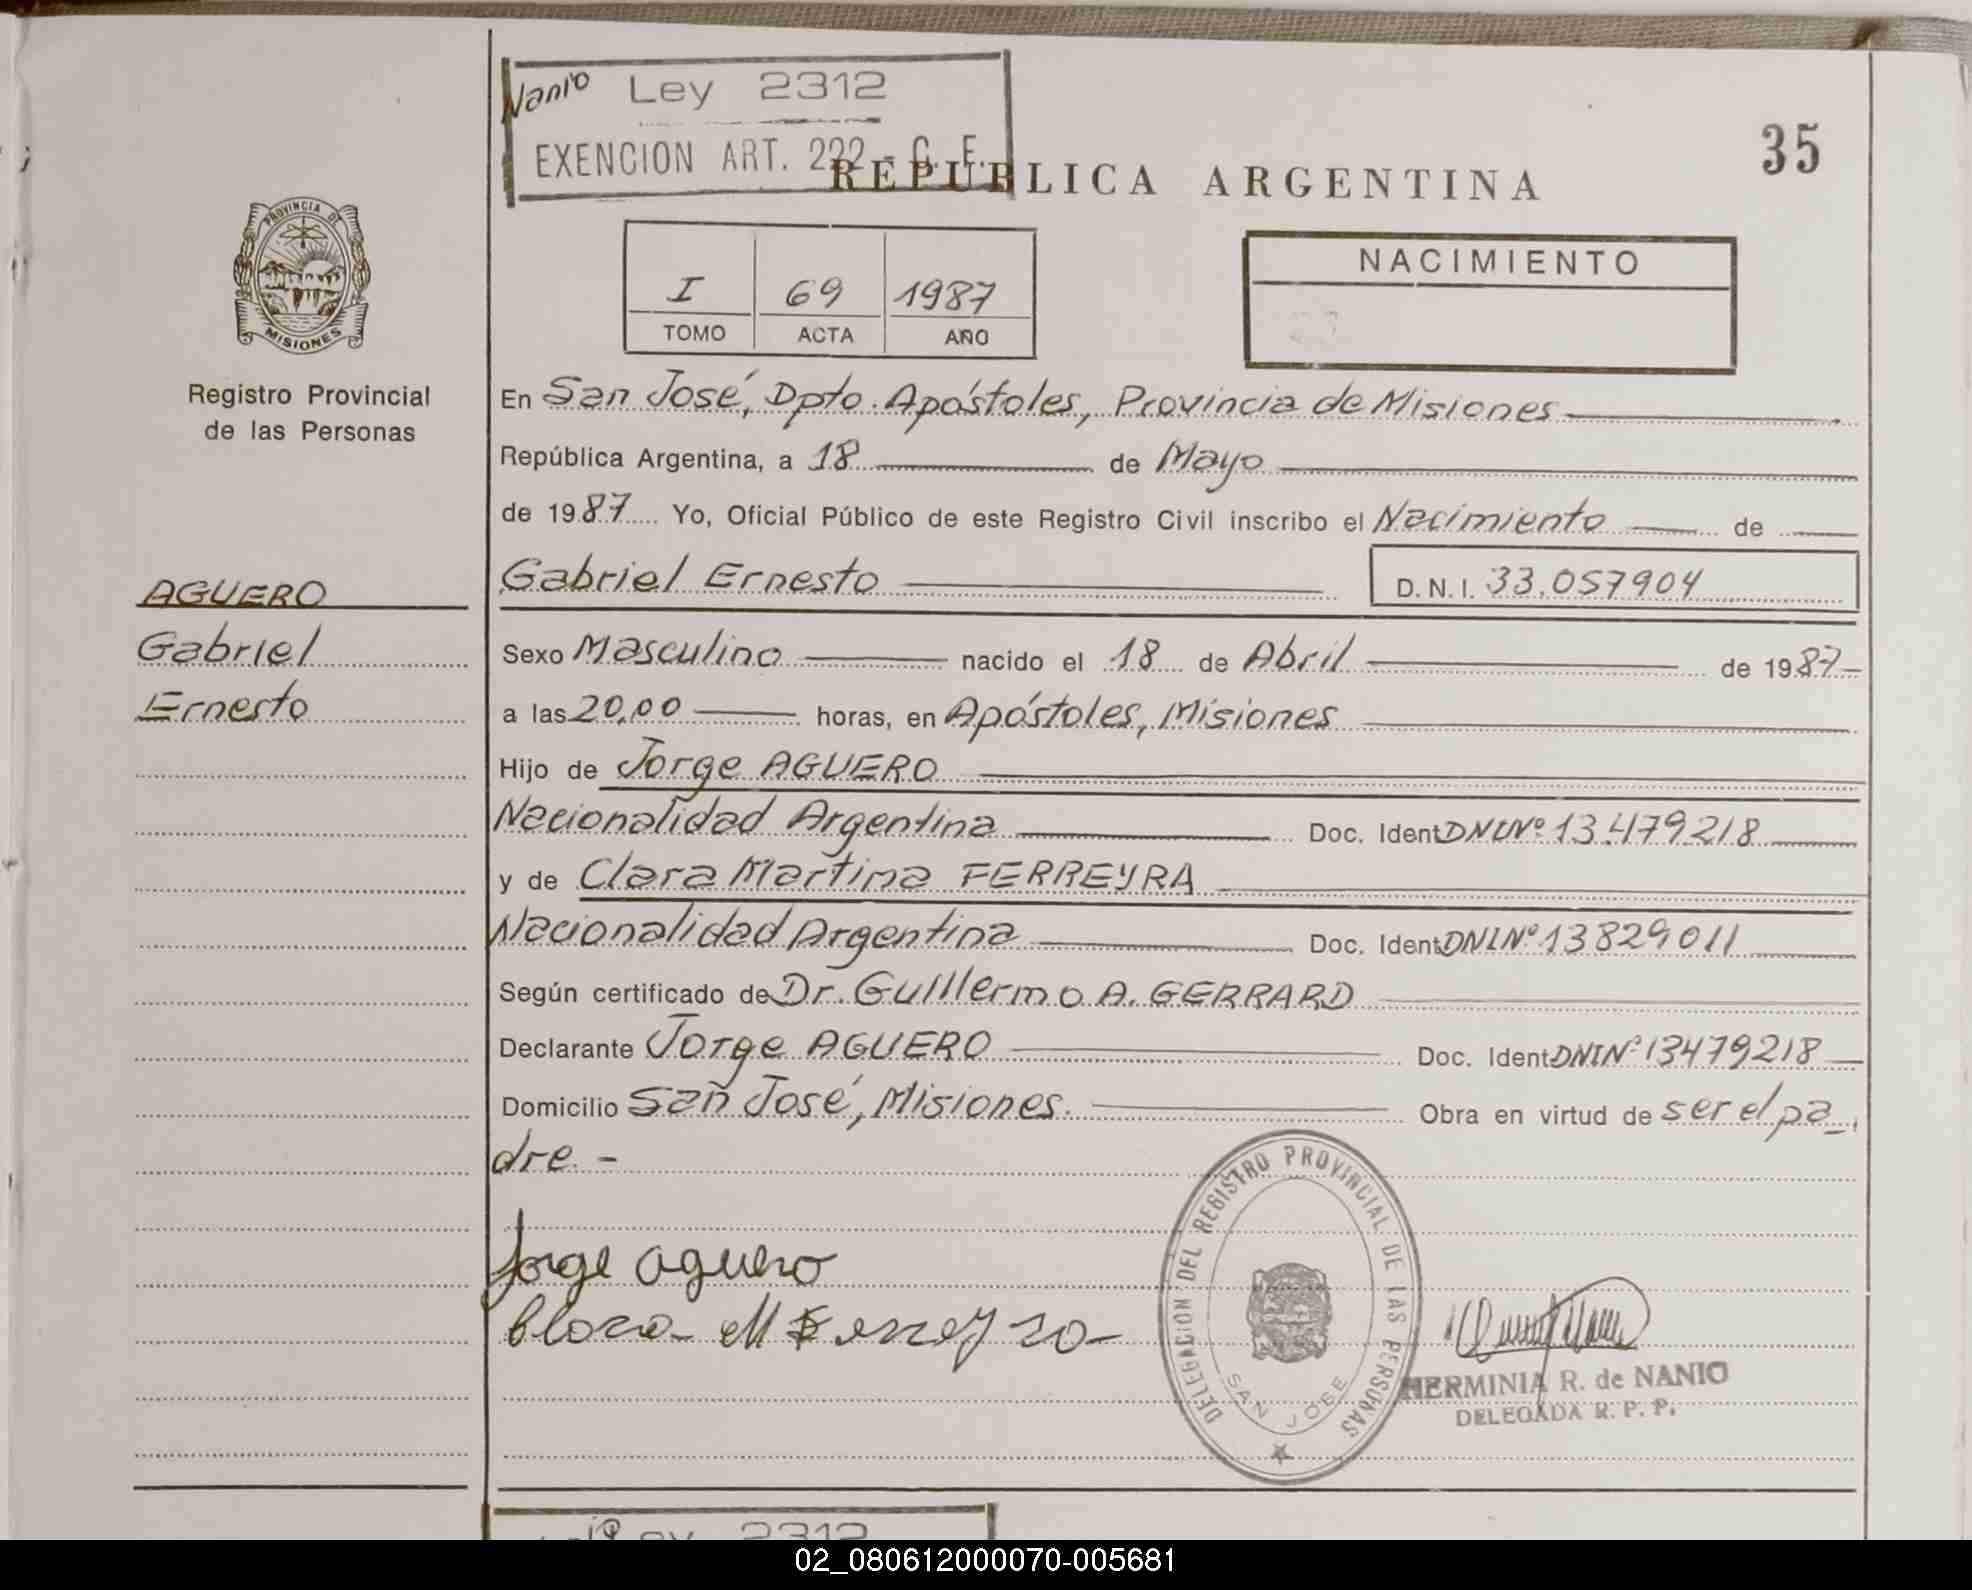 Nanio Ley 2312
EXENCION ART. 222 - C. F.
35
REPUBLICA ARGENTINA
PROVINCIA DE
MISIONES
Registro Provincial
de las Personas
I 69 1987
TOMO ACTA AÑO
NACIMIENTO
En San José, Dpto. Apóstoles, Provincia de Misiones
República Argentina, a 18 de Mayo
de 1987 Yo, Oficial Público de este Registro Civil inscribo el Nacimiento de
Gabriel Ernesto D.N.I. 33.057904
AGUERO
Gabriel
Ernesto
Sexo Masculino nacido el 18 de Abril de 1987
a las 20,00 horas, en Apóstoles, Misiones
Hijo de Jorge AGUERO
Nacionalidad Argentina Doc. Ident DNI Nº 13.479218
y de Clara Martina FERREYRA
Nacionalidad Argentina Doc. Ident DNI Nº 13829011
Según certificado de Dr. Guillermo A. GERRARD
Declarante Jorge AGUERO Doc. Ident DNI Nº 13479218
Domicilio San José, Misiones. Obra en virtud de ser el pa-
dre. -
Jorge aguero
Clara M Ferreyra
DELEGACION DEL REGISTRO PROVINCIAL DE LAS PERSONAS
SAN JOSE
HERMINIA R. de NANIO
DELEGADA R. P. P.
Ley 2312
02_080612000070-005681